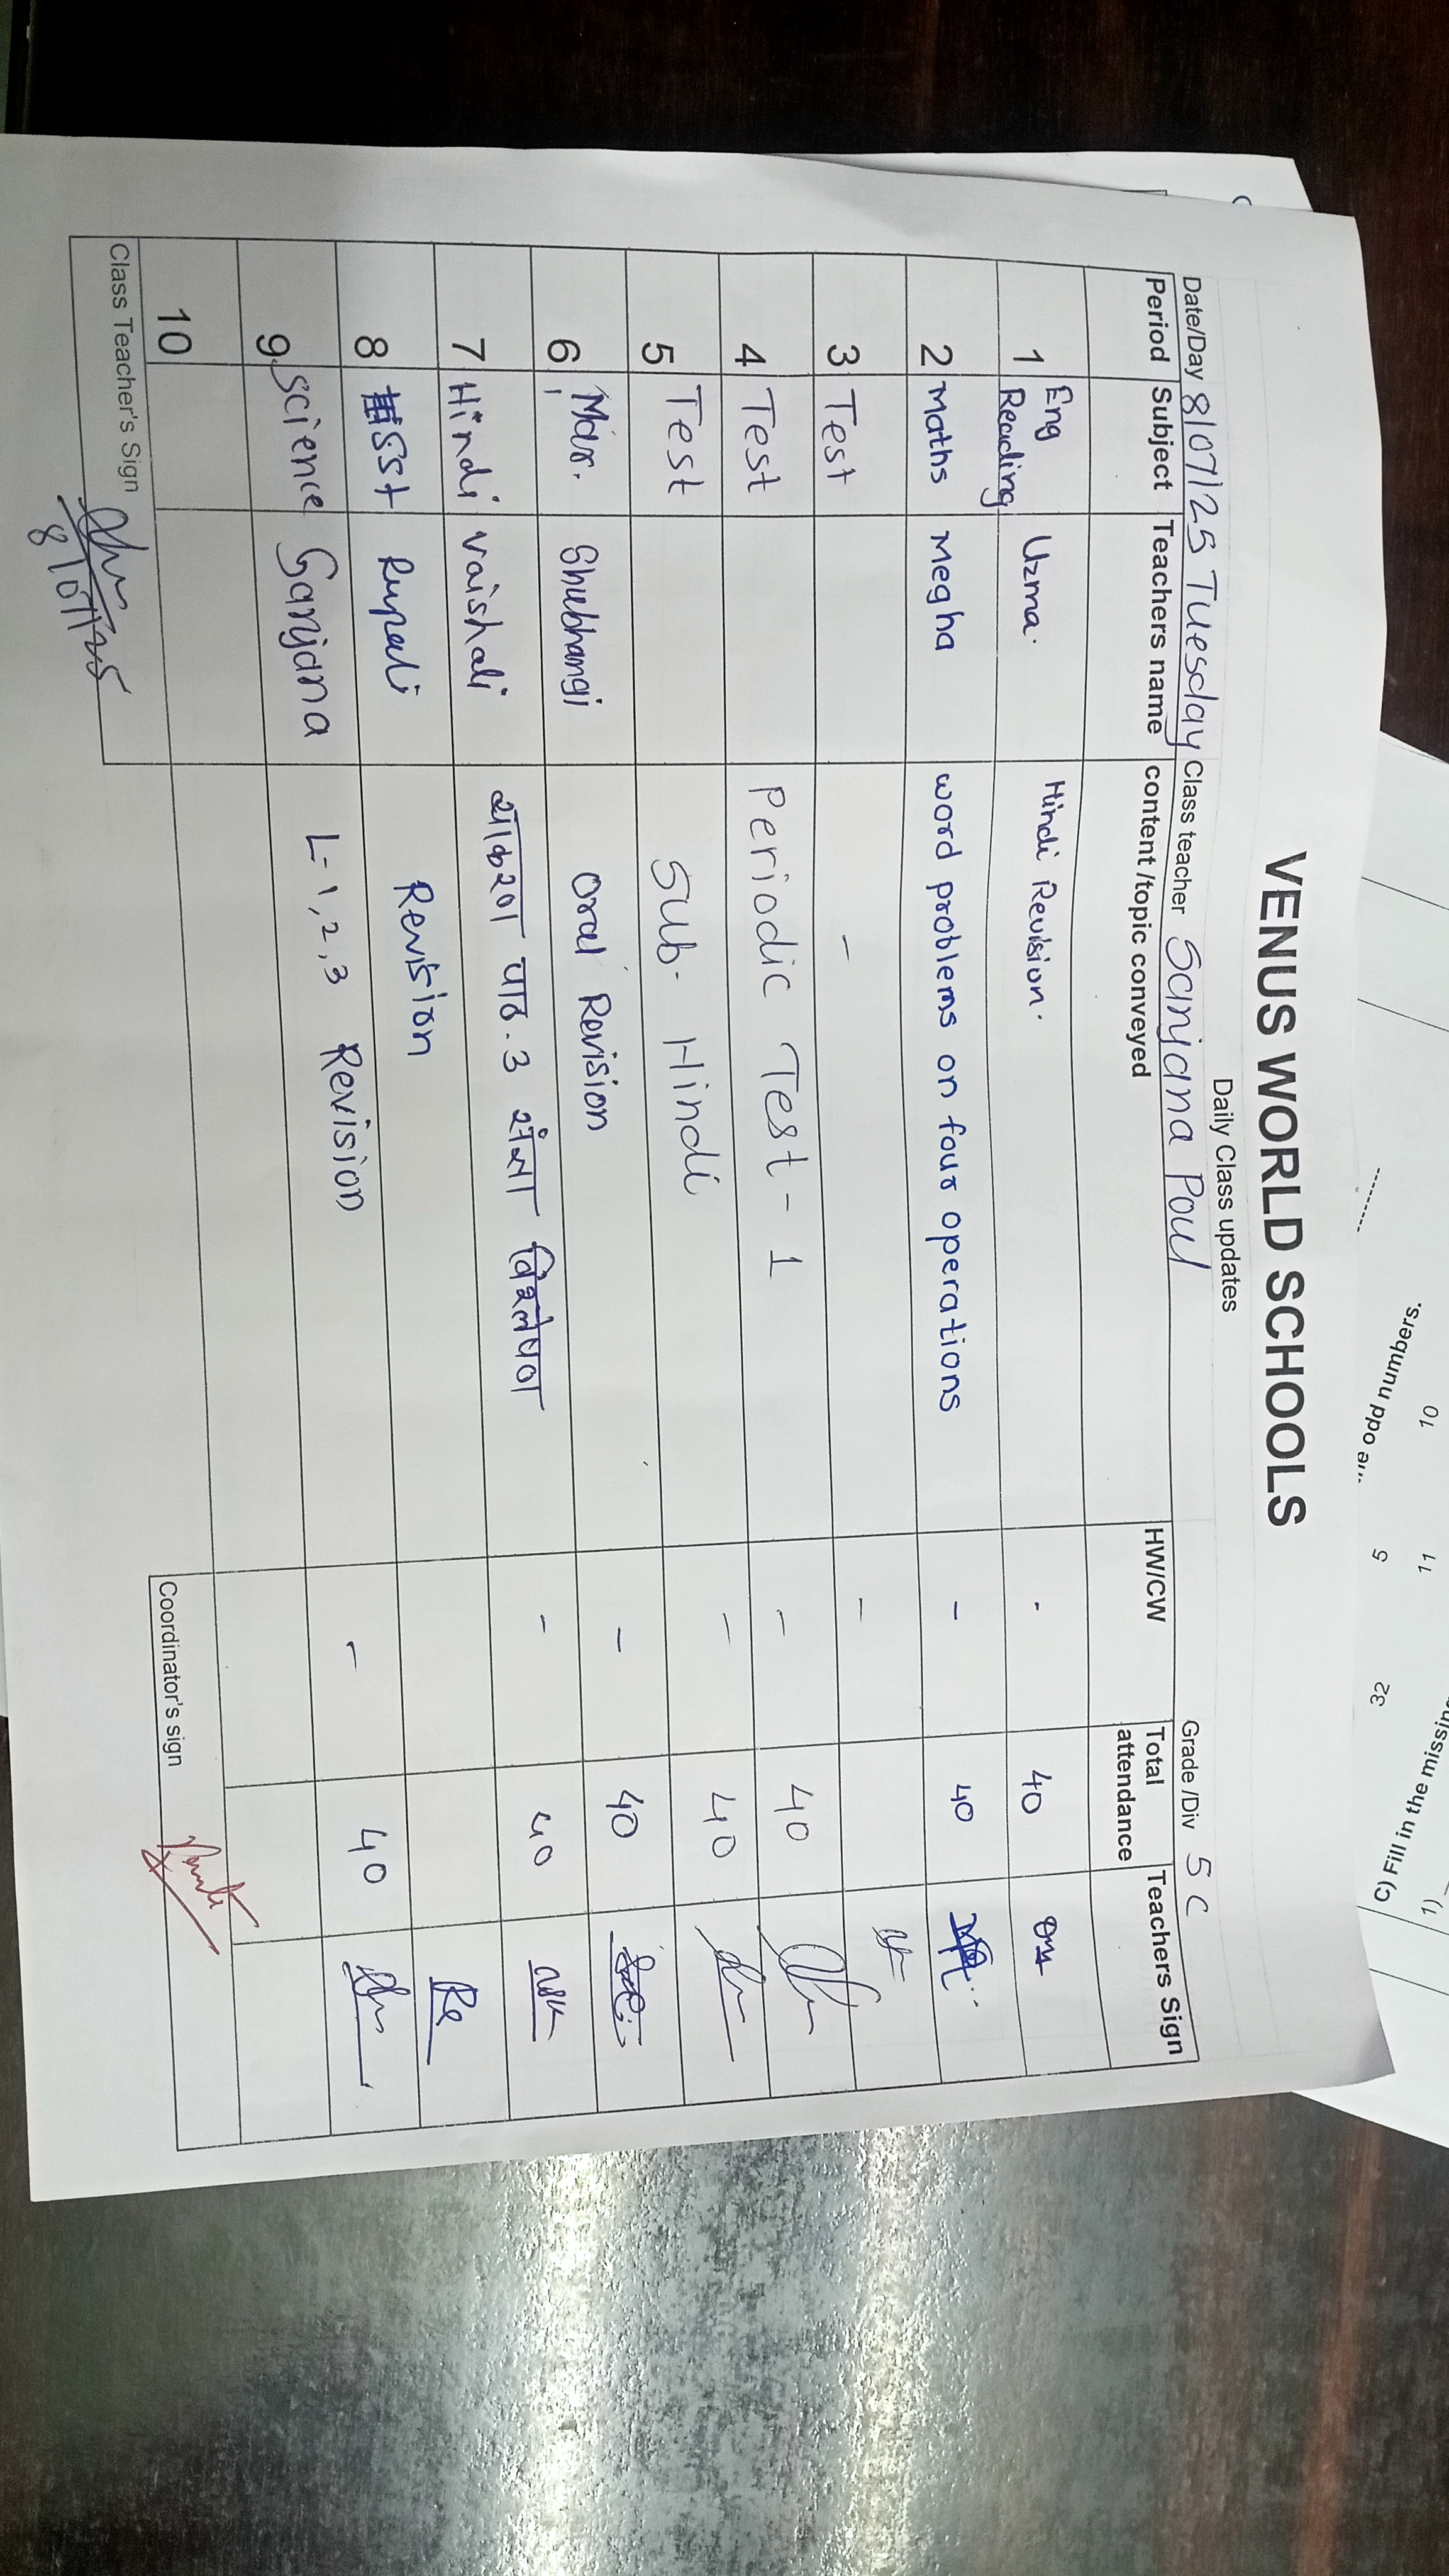 VENUS WORLD SCHOOLS
Daily Class updates
Date/Day 8/07/25 Tuesday Class teacher Sanjana Poul Grade /Div 5 C
Period Subject Teachers name content /topic conveyed HW/CW Total attendance Teachers Sign
1 Eng Reading Uzma. Hindi Revision. - 40
2 Maths Megha word problems on four operations - 40
3 Test - -
4 Test Periodic Test - 1 - 40
5 Test Sub. Hindi - 40
6 Mar. Shubhangi Oral Revision - 40
7 Hindi Vaishali व्याकरण पाठ.3 संज्ञा विश्लेषण - 40
8 SSt Rupali Revision
9 Science Sanjana L-1,2,3 Revision - 40
10
Class Teacher's Sign 8/07/25
Coordinator's sign
odd numbers.
5 32
10 11
C) Fill in the missin